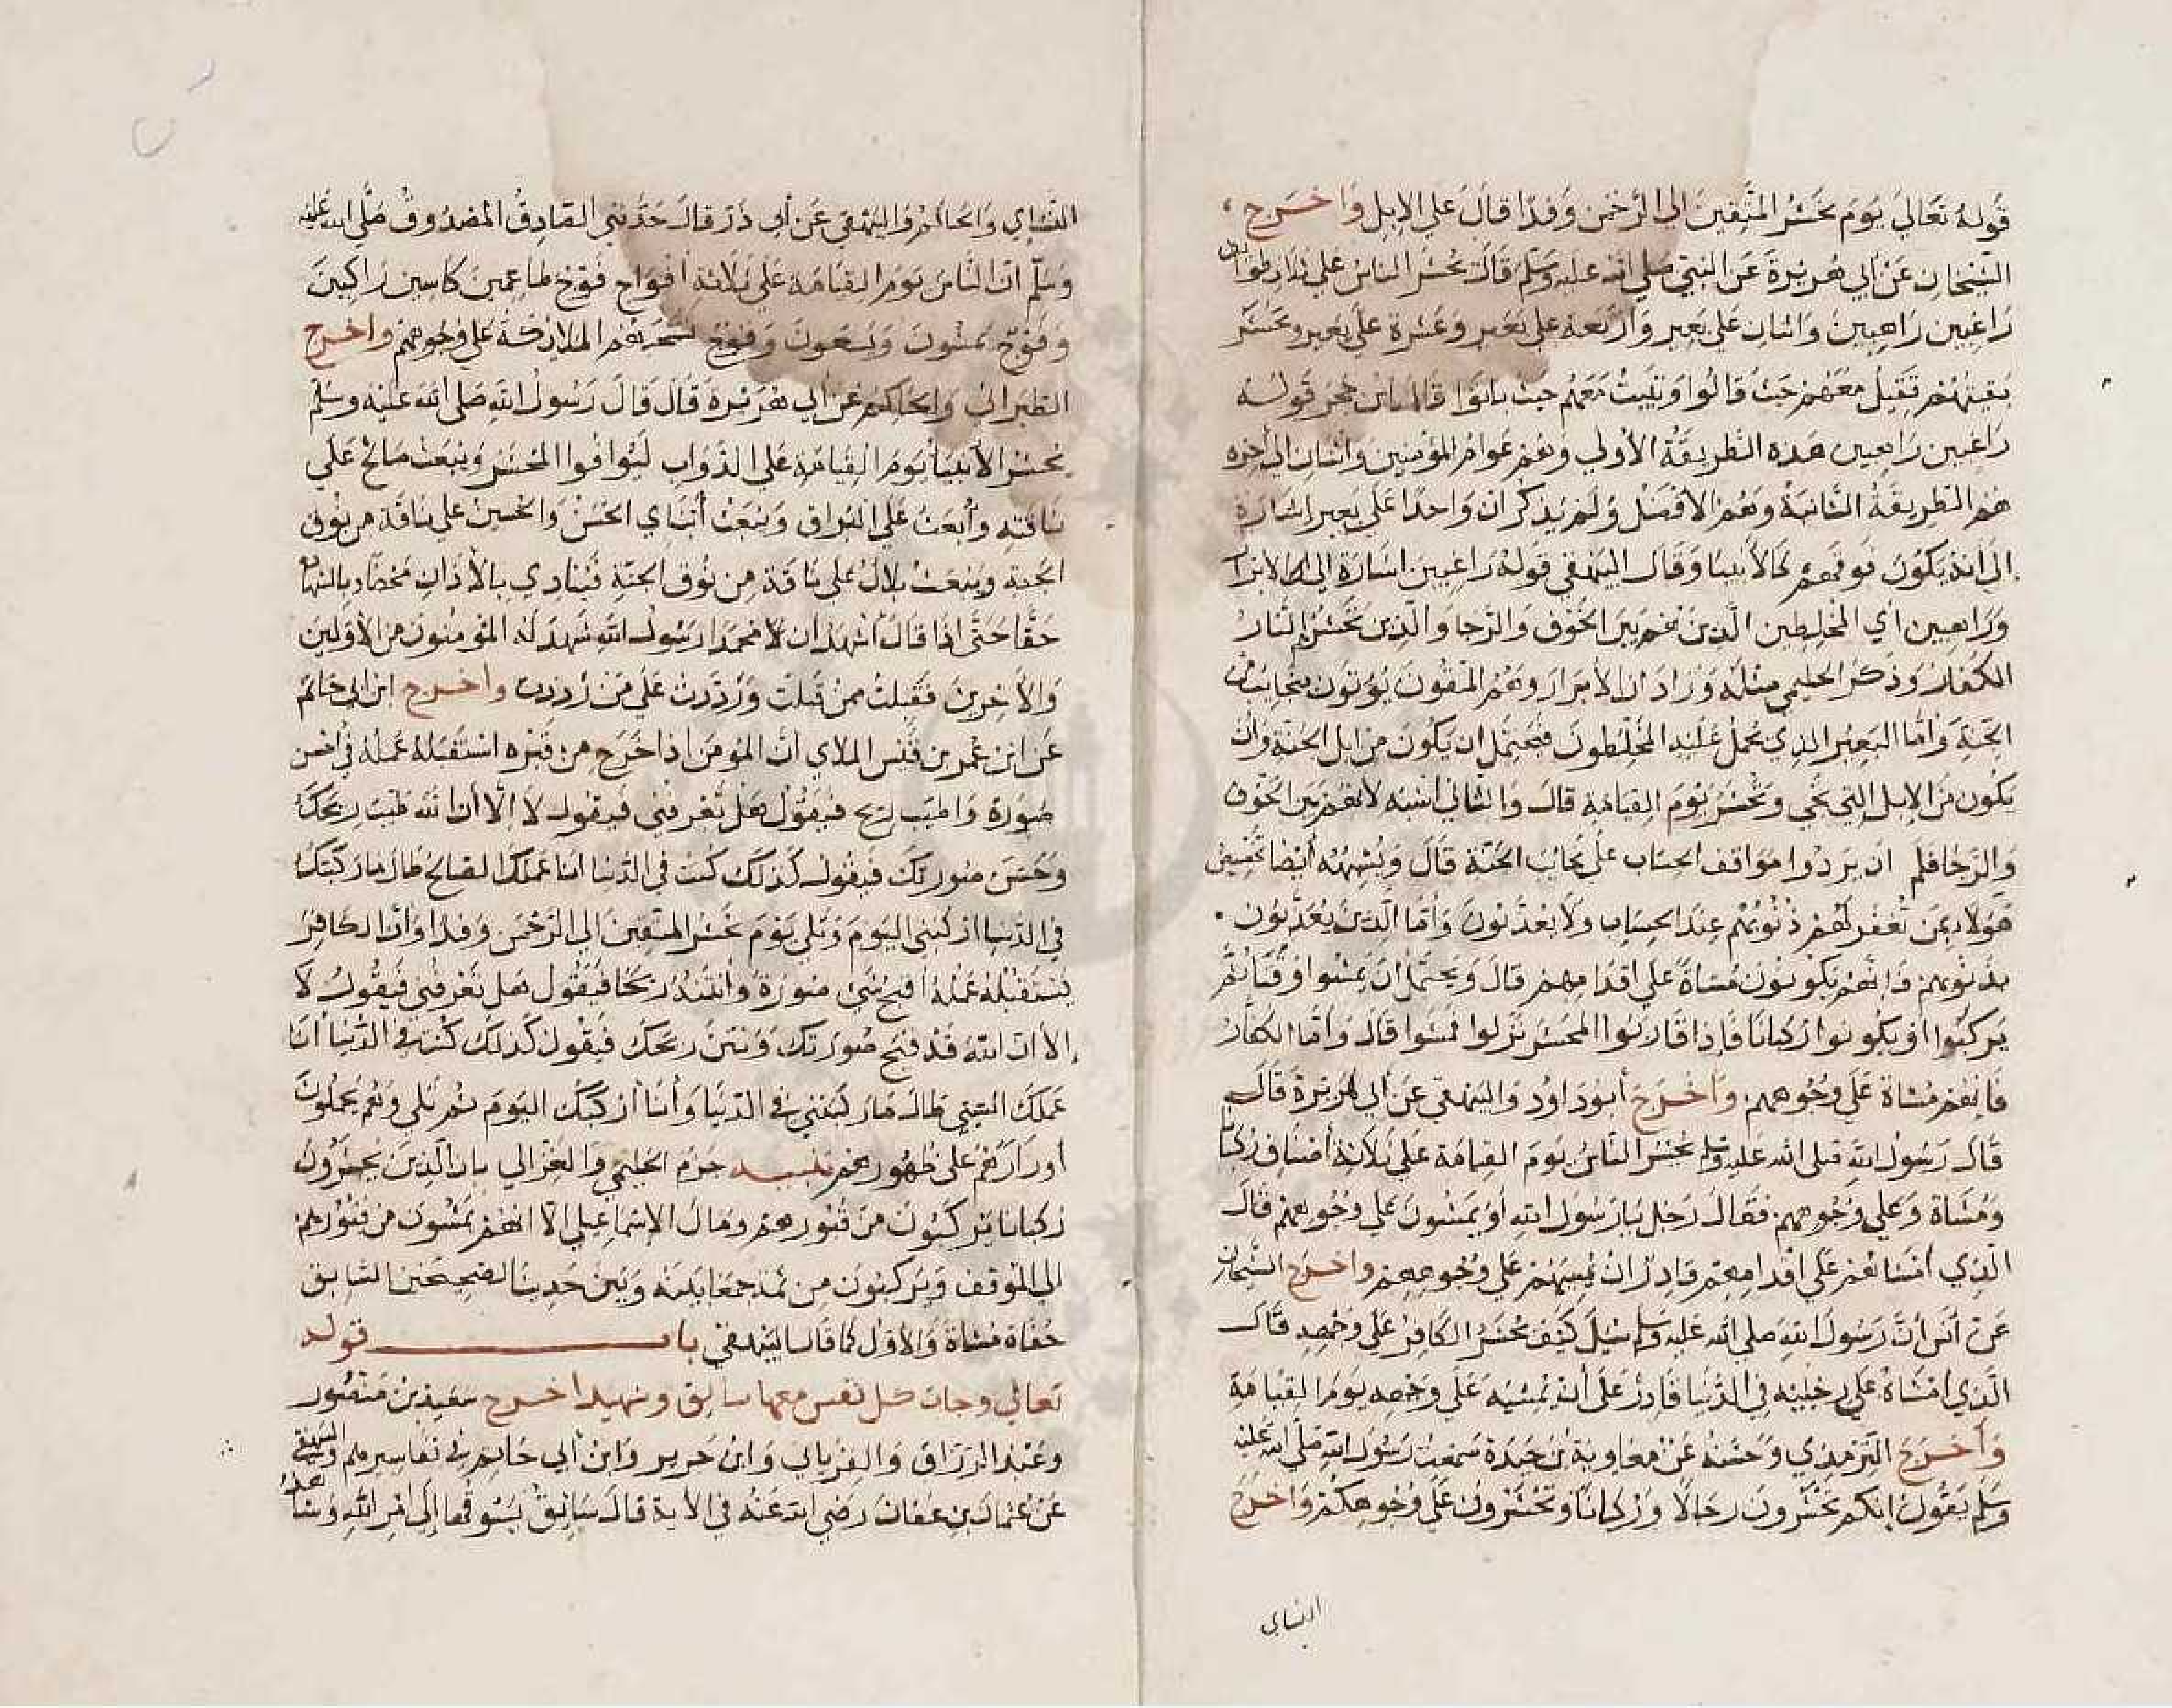 قوله تعالي يوم نحشر المتقين الي الرحمن وفدا قال علي الابل واخرج
الشيخان عن ابي هريرة عن النبي صلي الله عليه وسلم قال يحشر الناس علي ثلاث طرايق
راغبين راهبين واثنان علي بعير واربعة علي بعير وعشرة علي بعير وتحشر
بقيتهم تقيل معهم حيث قالوا وتبيت معهم حيث باتوا قال ابن حجر قوله
راغبين راهبين هذه الطريقة الاولي وهم عوام المؤمنين واثنان الي اخره
هم الطريقة الثانية وهم الافضل ولم يذكر ان واحدا علي بعير اشارة
الي انه يكون فوقهم كالانبيا وقال البيهقي قوله راغبين اشارة الي الابرار
وراهبين اي المخلطين الذين هم بين الخوف والرجا والذين تحشرهم النار
الكفار وذكر الحليمي مثله وزاد ان الابرار وهم المتقون يؤتون بنجايب من
الجنة واما البعير الذي يحمل عليه المخلطون فيحتمل ان يكون من ابل الجنة وان
يكون من الابل التي تحي وتحشر يوم القيامة قال والثاني اشبه لانهم بين الخوف
والرجا فلم ان يردوا مواقف الحساب علي نجائب الجنة قال ويشبه ايضا تخصيص
هولا بمن تغفر لهم ذنوبهم عند الحساب ولا يعذبون واما الذين يعذبون
بذنوبهم فانهم يكونون مشاة علي اقدامهم قال ويحتمل ان يمشوا وقتا ثم
يركبوا او يكونوا ركبانا فاذا قاربوا المحشر نزلوا فمشوا قال واما الكفار
فانهم مشاة علي وجوههم واخرج ابو داود والبيهقي عن ابي هريرة قال
قال رسول الله صلي الله عليه وسلم يحشر الناس يوم القيامة علي ثلاثة اصناف ركبانا
ومشاة وعلي وجوههم فقال رجل يا رسول الله او يمشون علي وجوههم قال
الذي امشاهم علي اقدامهم قادر ان يمشيهم علي وجوههم واخرج الشيخان
عن انس ان رسول الله صلي الله عليه وسلم سيل كيف يحشر الكافر علي وجهه قال
الذي امشاه علي رجليه في الدنيا قادر علي ان يمشيه علي وجهه يوم القيامة
واخرج الترمذي وحسنه عن معاوية بن حيدة سمعت رسول الله صلي الله عليه
وسلم يقول انكم تحشرون رجالا وركبانا وتحشرون علي وجوهكم واخرج
النساي
النساي والحاكم والبيهقي عن ابي ذر قال حدثني الصادق المصدوق صلي الله عليه
وسلم ان الناس يوم القيامة علي ثلاثة افواج فوج طاعمين كاسين راكبين
وفوج يمشون ويسعون وفوج تسحبهم الملائكة علي وجوههم واخرج
الطبراني والحاكم عن ابي هريرة قال قال رسول الله صلي الله عليه وسلم
يحشر الانبيا يوم القيامة علي الدواب ليوافوا المحشر ويبعث صالح علي
ناقته وابعث علي البراق ويبعث ابناي الحسن والحسين علي ناقة من نوق
الجنة ويبعث بلال علي ناقة من نوق الجنة فينادي بالاذان محضا وبالشهادة
حقا حتي اذا قال اشهد ان محمدا رسول الله شهد له المؤمنون من الاولين
والاخرين فقبلت ممن قبلت ورددت علي من رددت واخرج ابن ابي حاتم
عن ابن عمر بن قيس الملاي ان المومن اذا خرج من قبره استقبله عمله في احسن
صورة واطيب ريح فيقول هل تعرفني فيقول لا الا ان الله طيب ريحك
وحسن صورتك فيقول كذلك كنت في الدنيا انا عملك الصالح طال ما ركبتك
في الدنيا اركبني اليوم وتلي يوم نحشر المتقين الي الرحمن وفدا وان الكافر
يستقبله عمله اقبح شي صورة وانتنه ريحا فيقول هل تعرفني فيقول لا
الا ان الله قد قبح صورتك ونتن ريحك فيقول كذلك كنت في الدنيا انا
عملك السيي طال ما ركبتني في الدنيا وانا اركبك اليوم ثم تلي وهم يحملون
اوزارهم علي ظهورهم تنبيه جزم الحليمي والغزالي بان الذين يحشرون
ركبانا يركبون من قبورهم ومال الاسماعيلي الا انهم يمشون من قبورهم
الي الموقف ويركبون من ثم جمعا بينه وبين حديث الصحيحين السابق
حفاة مشاة والاول كما قال البيهقي باب قوله
تعالي وجات كل نفس معها سائق وشهيد اخرج سعيد بن منصور
وعبد الرزاق والفريابي وابن جرير وابن ابي حاتم في تفاسيرهم والبيهقي
عن عثمان بن عفان رضي الله عنه في الاية قال سائق يسوقها الي امر الله وشاهد